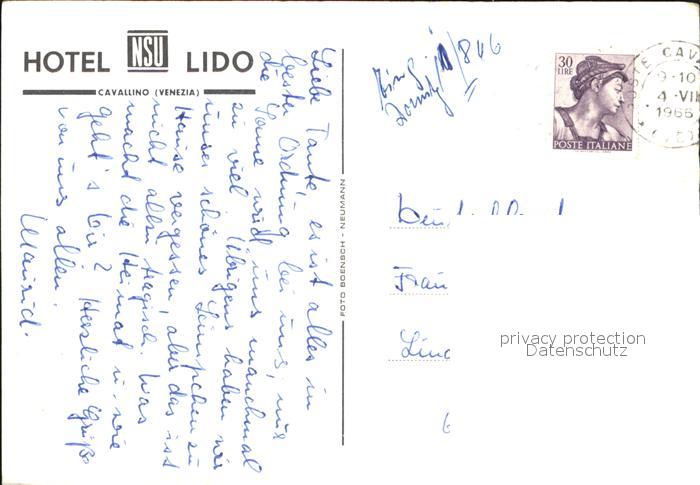 HOTEL NSU LIDO
CAVALLINO (VENEZIA)
Liebe Tante, es ist alles in
bester Ordnung bei uns, nur
die Sonne wird uns manchmal
zu viel. Übrigens haben wir
unser schönes Lämpchen zu
Hause vergessen, aber das ist
nicht allzu tragisch. Was
macht die Heimat u. wie
geht's Dir? Herzliche Grüße
von uns allen.
FOTO BOENSCH - NEUMANN
/846
30
LIRE
POSTE ITALIANE
9-10
4-VII
1966
Frau
privacy protection
Datenschutz